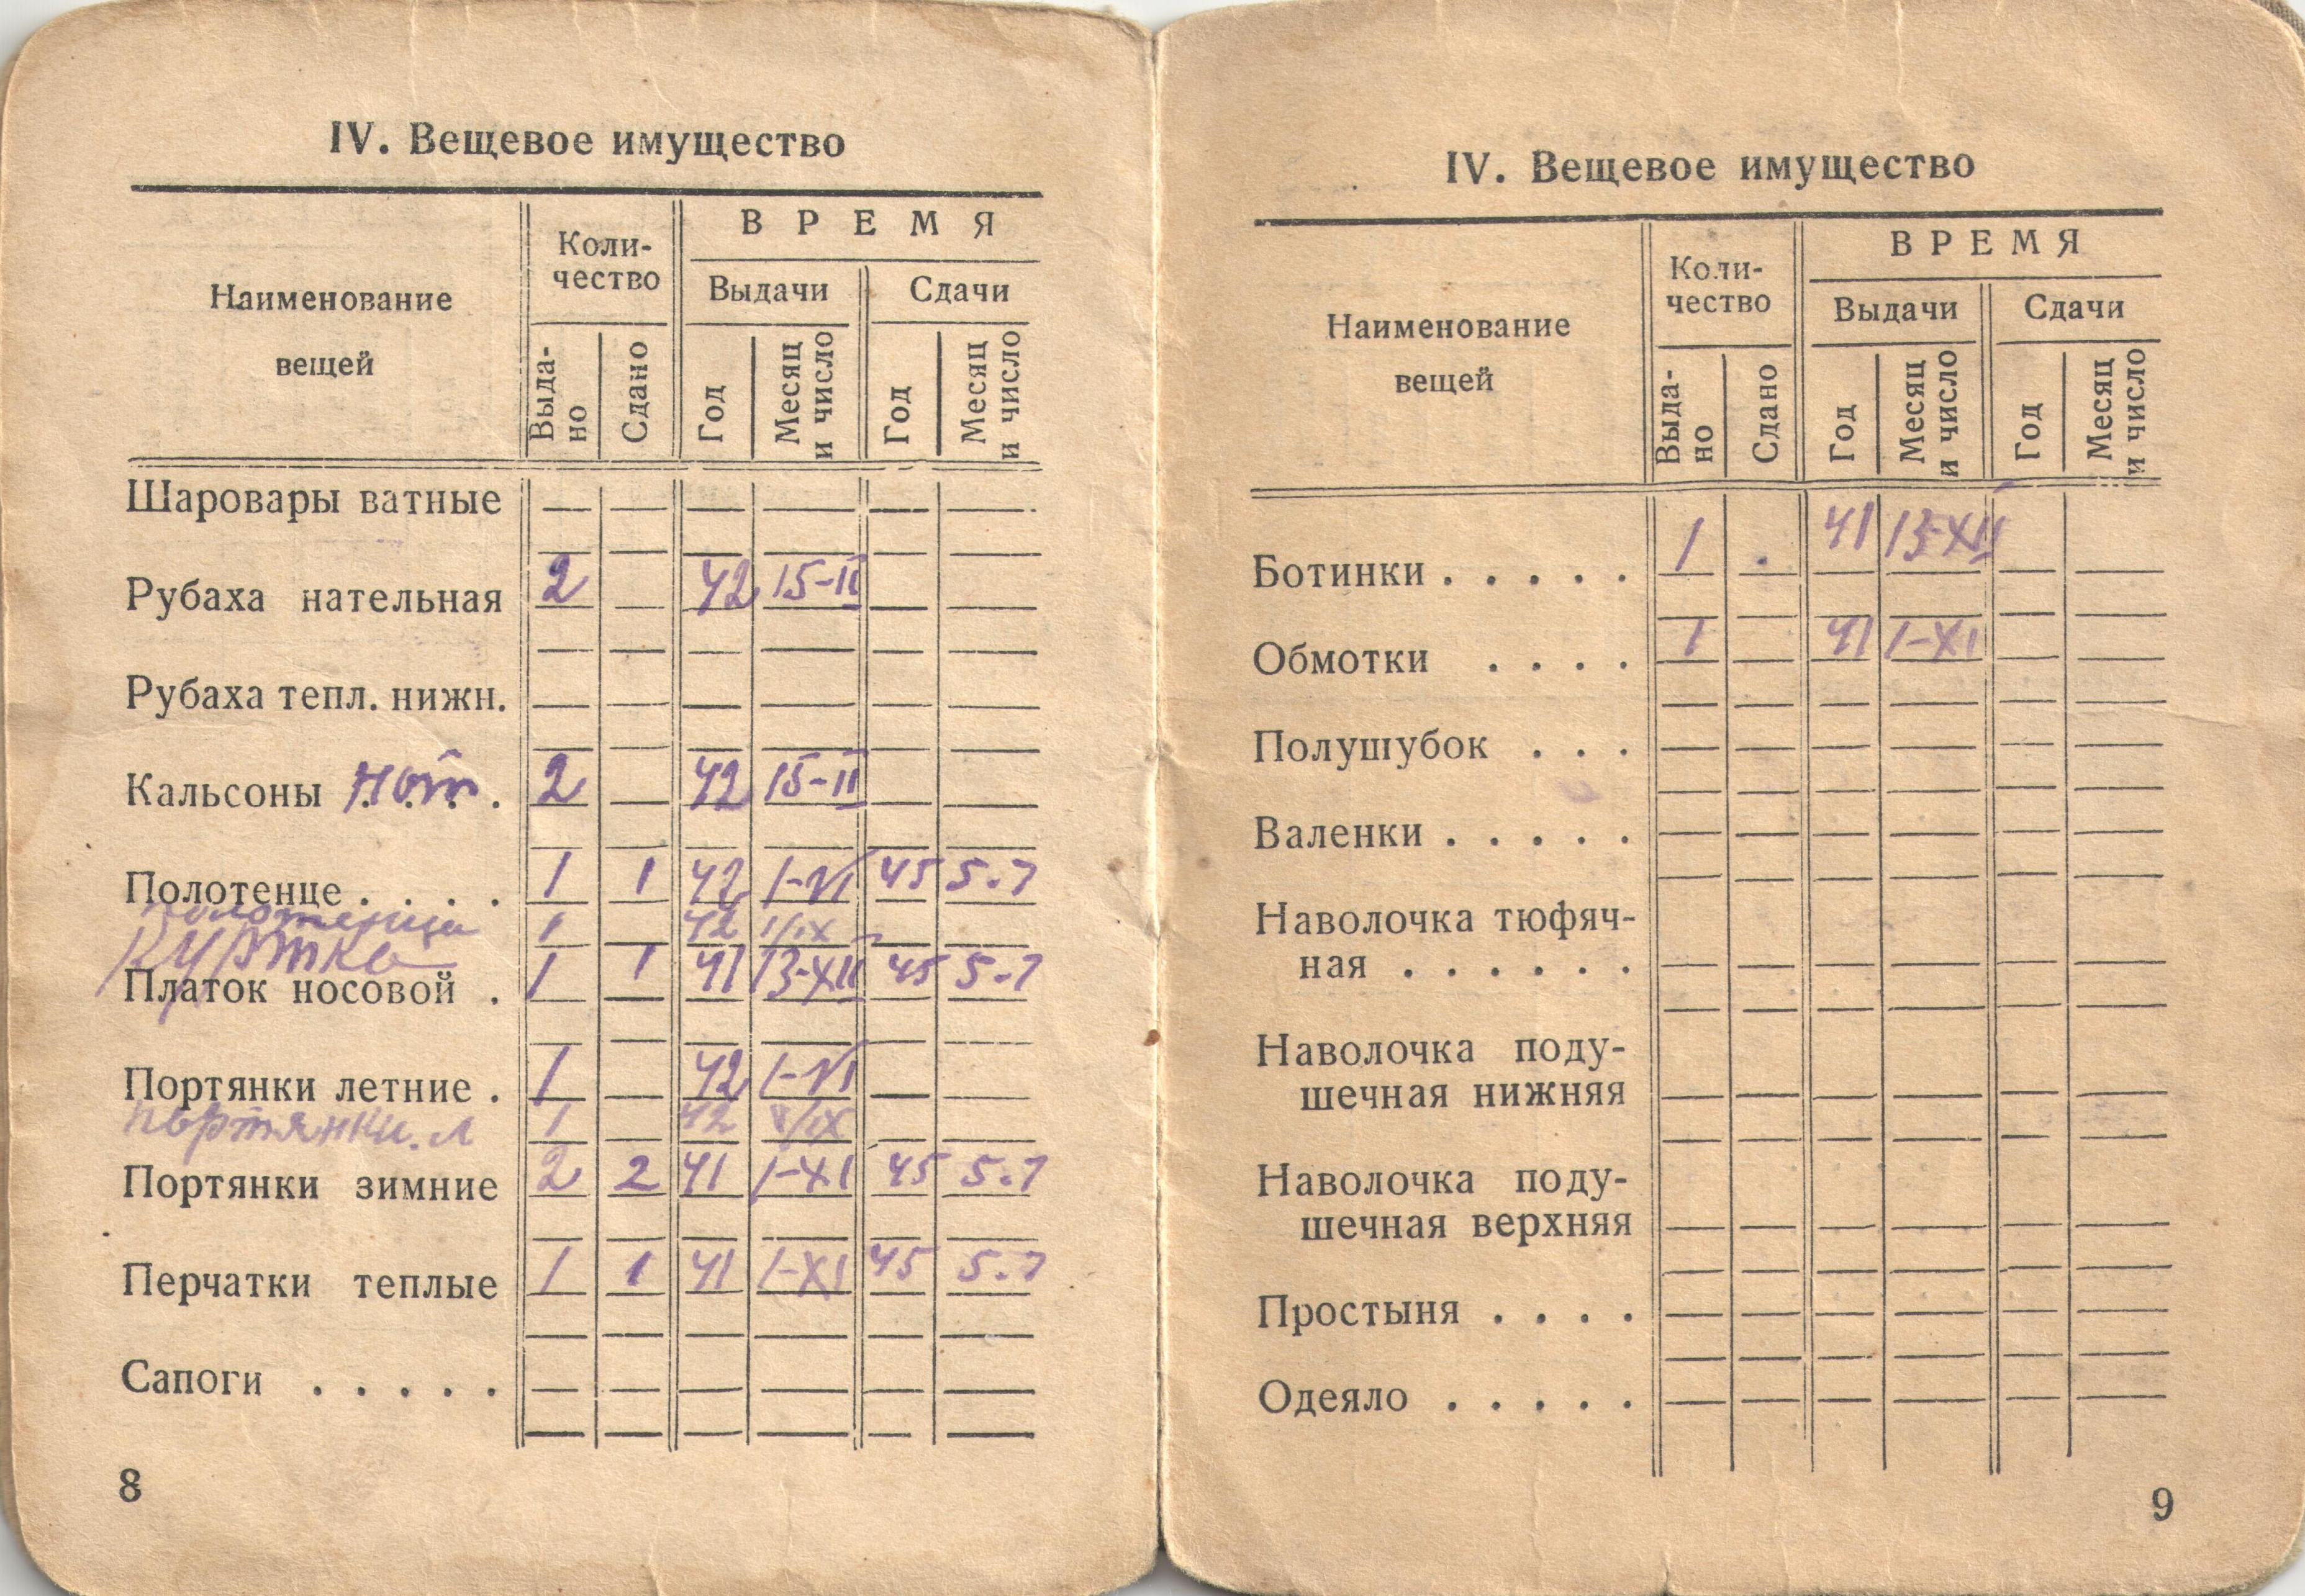 IV. Вещевое имущество
Наименование вещей
Коли-
чество
ВРЕМЯ
Выдачи
Сдачи
Выда-
но
Сдано
Год
Месяц
и число
Год
Месяц
и число
Шаровары ватные
Рубаха нательная 2 42 15-II
Рубаха тепл. нижн.
Кальсоны нат. 2 42 15-II
Полотенце . . . . 1 1 42 1-VI 45 5.7
полотенца 1 42 1/IX
Куртка
Платок носовой . 1 1 41 13-XII 45 5-7
Портянки летние . 1 42 1-VI
портянки.л 1 42 /IX
Портянки зимние 2 2 41 1-XI 45 5.7
Перчатки теплые 1 1 41 1-XI 45 5.7
Сапоги . . . . .
8
IV. Вещевое имущество
Наименование вещей
Коли-
чество
ВРЕМЯ
Выдачи
Сдачи
Выда-
но
Сдано
Год
Месяц
и число
Год
Месяц
и число
Ботинки . . . . . 1 41 13-XII
Обмотки . . . . 1 41 1-XI
Полушубок . . .
Валенки . . . . .
Наволочка тюфяч-
ная . . . . . .
Наволочка поду-
шечная нижняя
Наволочка поду-
шечная верхняя
Простыня . . . .
Одеяло . . . . .
9